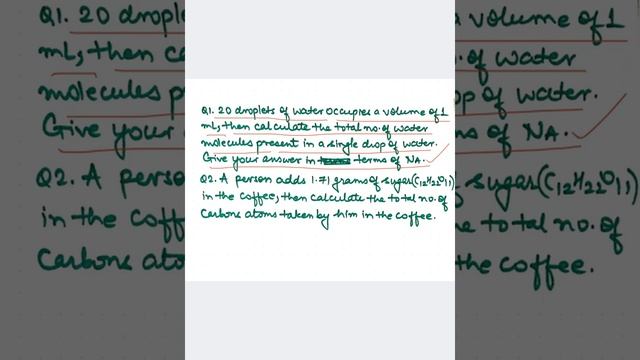 Q1. 20 droplets of water occupies a volume of 1
ml, then calculate the total no. of water
molecules present in a single drop of water.
Give your answer in terms of NA.
Q2. A person adds 1.71 grams of sugar (C12H22O11)
in the coffee, then calculate the total no. of
Carbons atoms taken by him in the coffee.